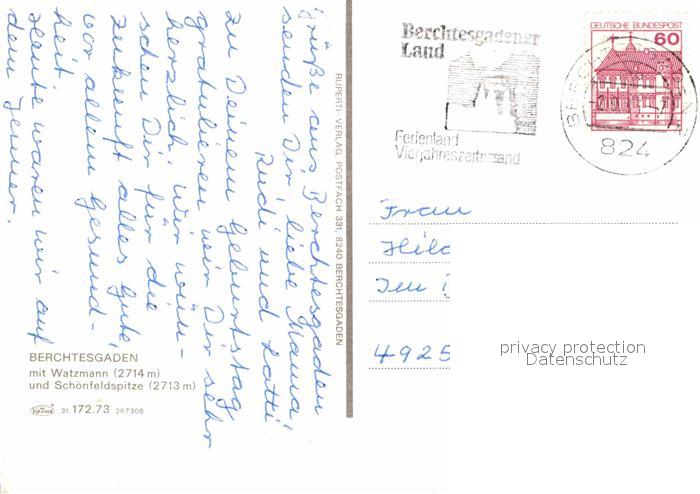 Grüße aus Berchtesgaden
senden Dir liebe Mama
Rudi und Lotti
Zu Deinem Geburtstag
gratulieren wir Dir sehr
herzlich. Wir wün-
schen Dir für die
Zukunft alles Gute,
vor allem Gesund-
heit
Heute waren wir auf
dem Jenner.
BERCHTESGADEN
mit Watzmann (2714 m)
und Schönfeldspitze (2713 m)
Krüger 31.172.73 267308
RUPERTI-VERLAG, POSTFACH 331, 8240 BERCHTESGADEN
Berchtesgadener
Land
Ferienland
Vierjahreszeitenland
DEUTSCHE BUNDESPOST
60
824
Frau
4925
privacy protection
Datenschutz